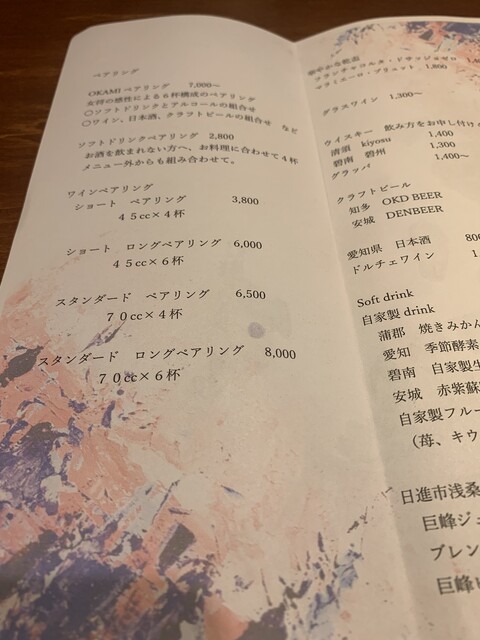 ペアリング
OKAMIペアリング 7,000〜
女将の感性による6杯構成のペアリング
〇ソフトドリンクとアルコールの組合せ
〇ワイン、日本酒、クラフトビールの組合せ など
ソフトドリンクペアリング 2,800
お酒を飲まれない方へ、お料理に合わせて4杯
メニュー外からも組み合わせて。
ワインペアリング
ショート ペアリング 3,800
45cc×4杯
ショート ロングペアリング 6,000
45cc×6杯
スタンダード ペアリング 6,500
70cc×4杯
スタンダード ロングペアリング 8,000
70cc×6杯
華やかな乾杯
フランチャコルタ・ドサッジョゼロ
マラミエーロ・ブリュット 1,800
グラスワイン 1,300〜
ウイスキー 飲み方をお申し付け
清須 kiyosu 1,400
碧南 碧州 1,300
グラッパ 1,400〜
クラフトビール
知多 OKD BEER
安城 DENBEER
愛知県 日本酒 800
ドルチェワイン
Soft drink
自家製 drink
蒲郡 焼きみかん
愛知 季節酵素
碧南 自家製生
安城 赤紫蘇
自家製フルー
（苺、キウ
日進市浅桑
巨峰ジュ
ブレン
巨峰